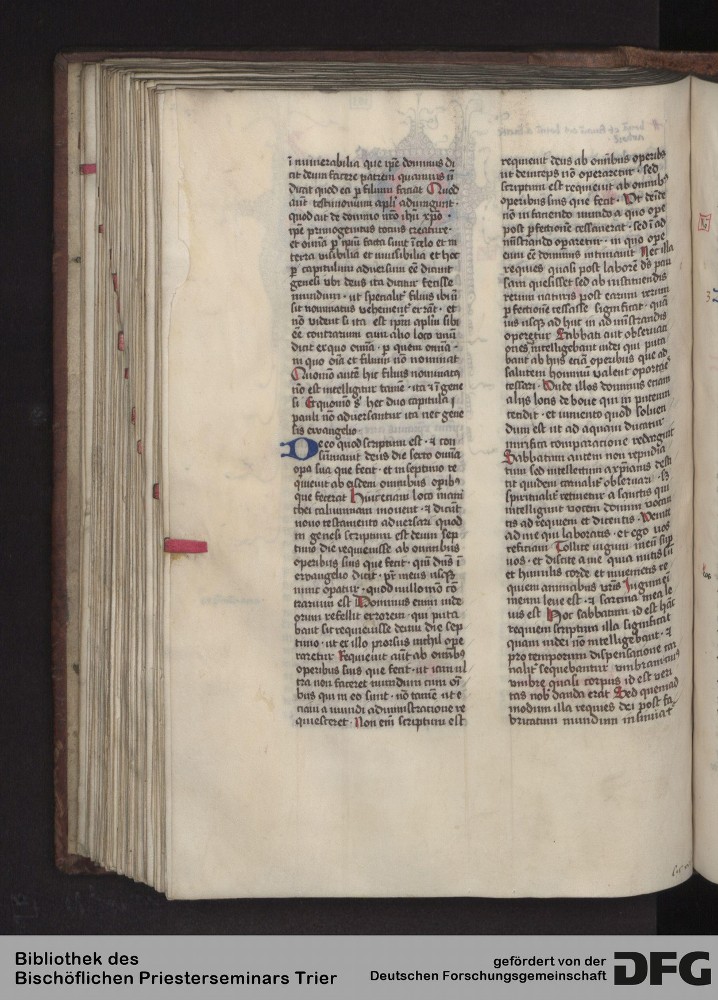 i nu¯erabilia que ip̄e dominus di
cit deum facere patrem quamuis n̄
dicat quod ea ꝑ filium faciat Quod
aut̄ testimonium apl̄i adiungunt ·
quod ait de domino n̄ro ih̄u xp̄o ·
ip̄e primogenitus totius creature ·
et om̄ia ꝑ ip̄m facta sunt ī celo et in
terra visibilia et inuisibilia et hoc
ꝑ capitulum aduersum eē dicunt
genesi vbi deus ita dicitur fecisse
mundum · ut specialit̓ filius ibi n̄
sit nominatus vehement̓ errāt · et
nō vident si ita est ip̄m apl̄m sibi
eē contrarium cum alio loco vnū
dicit ex quo om̄ia · ꝑ quem om̄ia ·
in quo om̄ia et filium nō nominat
Quomō autē hic filius nominatꝰ
nō est intelligitur tamē · ita ⁊ ī gene
si Et quomō s̄ hec duo capitula ī
pauli nō aduersantur ita nec gene
sis ewangelio ·
De eo quod scriptum est · ⁊ con
sūmauit deus die sexto om̄ia
opa sua que fecit · et in septimo re
quieuit ab eisdem omnibus opībꝰ
que fecerat Huic etiam loco mani
chei calumniam mouent · ⁊ dicūt
nouo testamento aduersari quod
in genesi scriptum est deum sep
timo die requieuisse ab omnibus
operibus suis que fecit · qm̄ dn̄s ī
ewangelio dicit · pr̄ meus usqꝫ
nunc opatur · quod nullo mō cō
trarium est Dominus enim iude
orum refellit errorem · qui puta
bant sic requieuisse deum die sep
timo · ut ex illo prorsus nichil ope
raretur Requieuit aūt ab om̄ibꝰ
operibus suis que fecit · ut iam ul
tra non faceret mundum cum oī
bus qui in eo sunt · nō tamē ut e
ciam a mundi administracione re
quiesceret · Non em̄ scriptum est
requieuit deus ab om̄ibus operibꝫ
ut deinceps nō operaretur · sed
scriptum est requieuit ab om̄ibꝰ
operibus suis que fecit · Vt deīde
nō in faciendo mundo a quo ope
post ꝑfectionē cessauerat · sed ī ad
ministrando opāretur · in quo ope
eum eē dominus intimauit Nec illa
requies quasi post laborē dꝫ pau
sam quesisset sed ab instituendis
rerum naturis post earum rerum
ꝑfectionē cessasse significat · quāꝰ
uis usqꝫ ad huc in administrandis
operetur Sabbati aūt obseruati
ones intelligebant iudei qui puta
bant ab hijs etiā operibus que ad
salutem hominū valent oportēt
cessari · Vnde illos dominus etiam
alijs locis de boue qui in puteum
cecidit · et iumento quod soluen
dum est ut ad aquam ducatur
mirifica comparacione redarguit
Sabbatum autem non repudia
tum sed intellectum xp̄ianis desi
nt quidem carnalit̓ obseruari · sꝫ
spiritualit̓ retinetur a sanctis qui
intelligunt vocem domini vocan
tis ad requiem et dicentis · Venite
ad me qui laboratis · et ego uos
reficiam Tollite iugum meū sup̄
uos · et discite a me quia mitis sū
et humilis corde et inuenietis re
quiem animabus vr̄is Iugum ei
meum leue est · ⁊ sarcina mea le
uis est Hoc sabbatum id est hāc
requiem scriptura illa significat
quam iudei nō intelligebant · ⁊
pro temporum dispensatione car
nalit̓ sequebantur umbram cuiꝰ
vmbre quasi corpus id est veri
tas nob̄ danda erat Sed quemad
modum illa requies dei post fa
bricatum mundum insinuat̓
Bibliothek des
Bischöflichen Priesterseminars Trier
gefördert von der
Deutschen Forschungsgemeinschaft
DFG